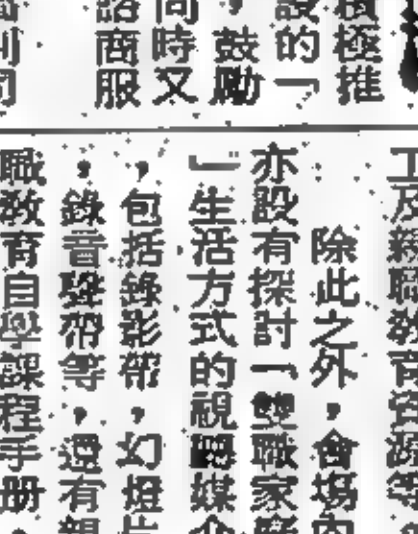 積極推
設的「
，鼓勵
同時又
諮商服
工及親職教育資源等
除此之外，會場內
亦設有探討「雙職家庭
」生活方式的視聽媒介
，包括錄影帶，幻燈片
，錄音聲帶等，還有親
職教育自學課程手册